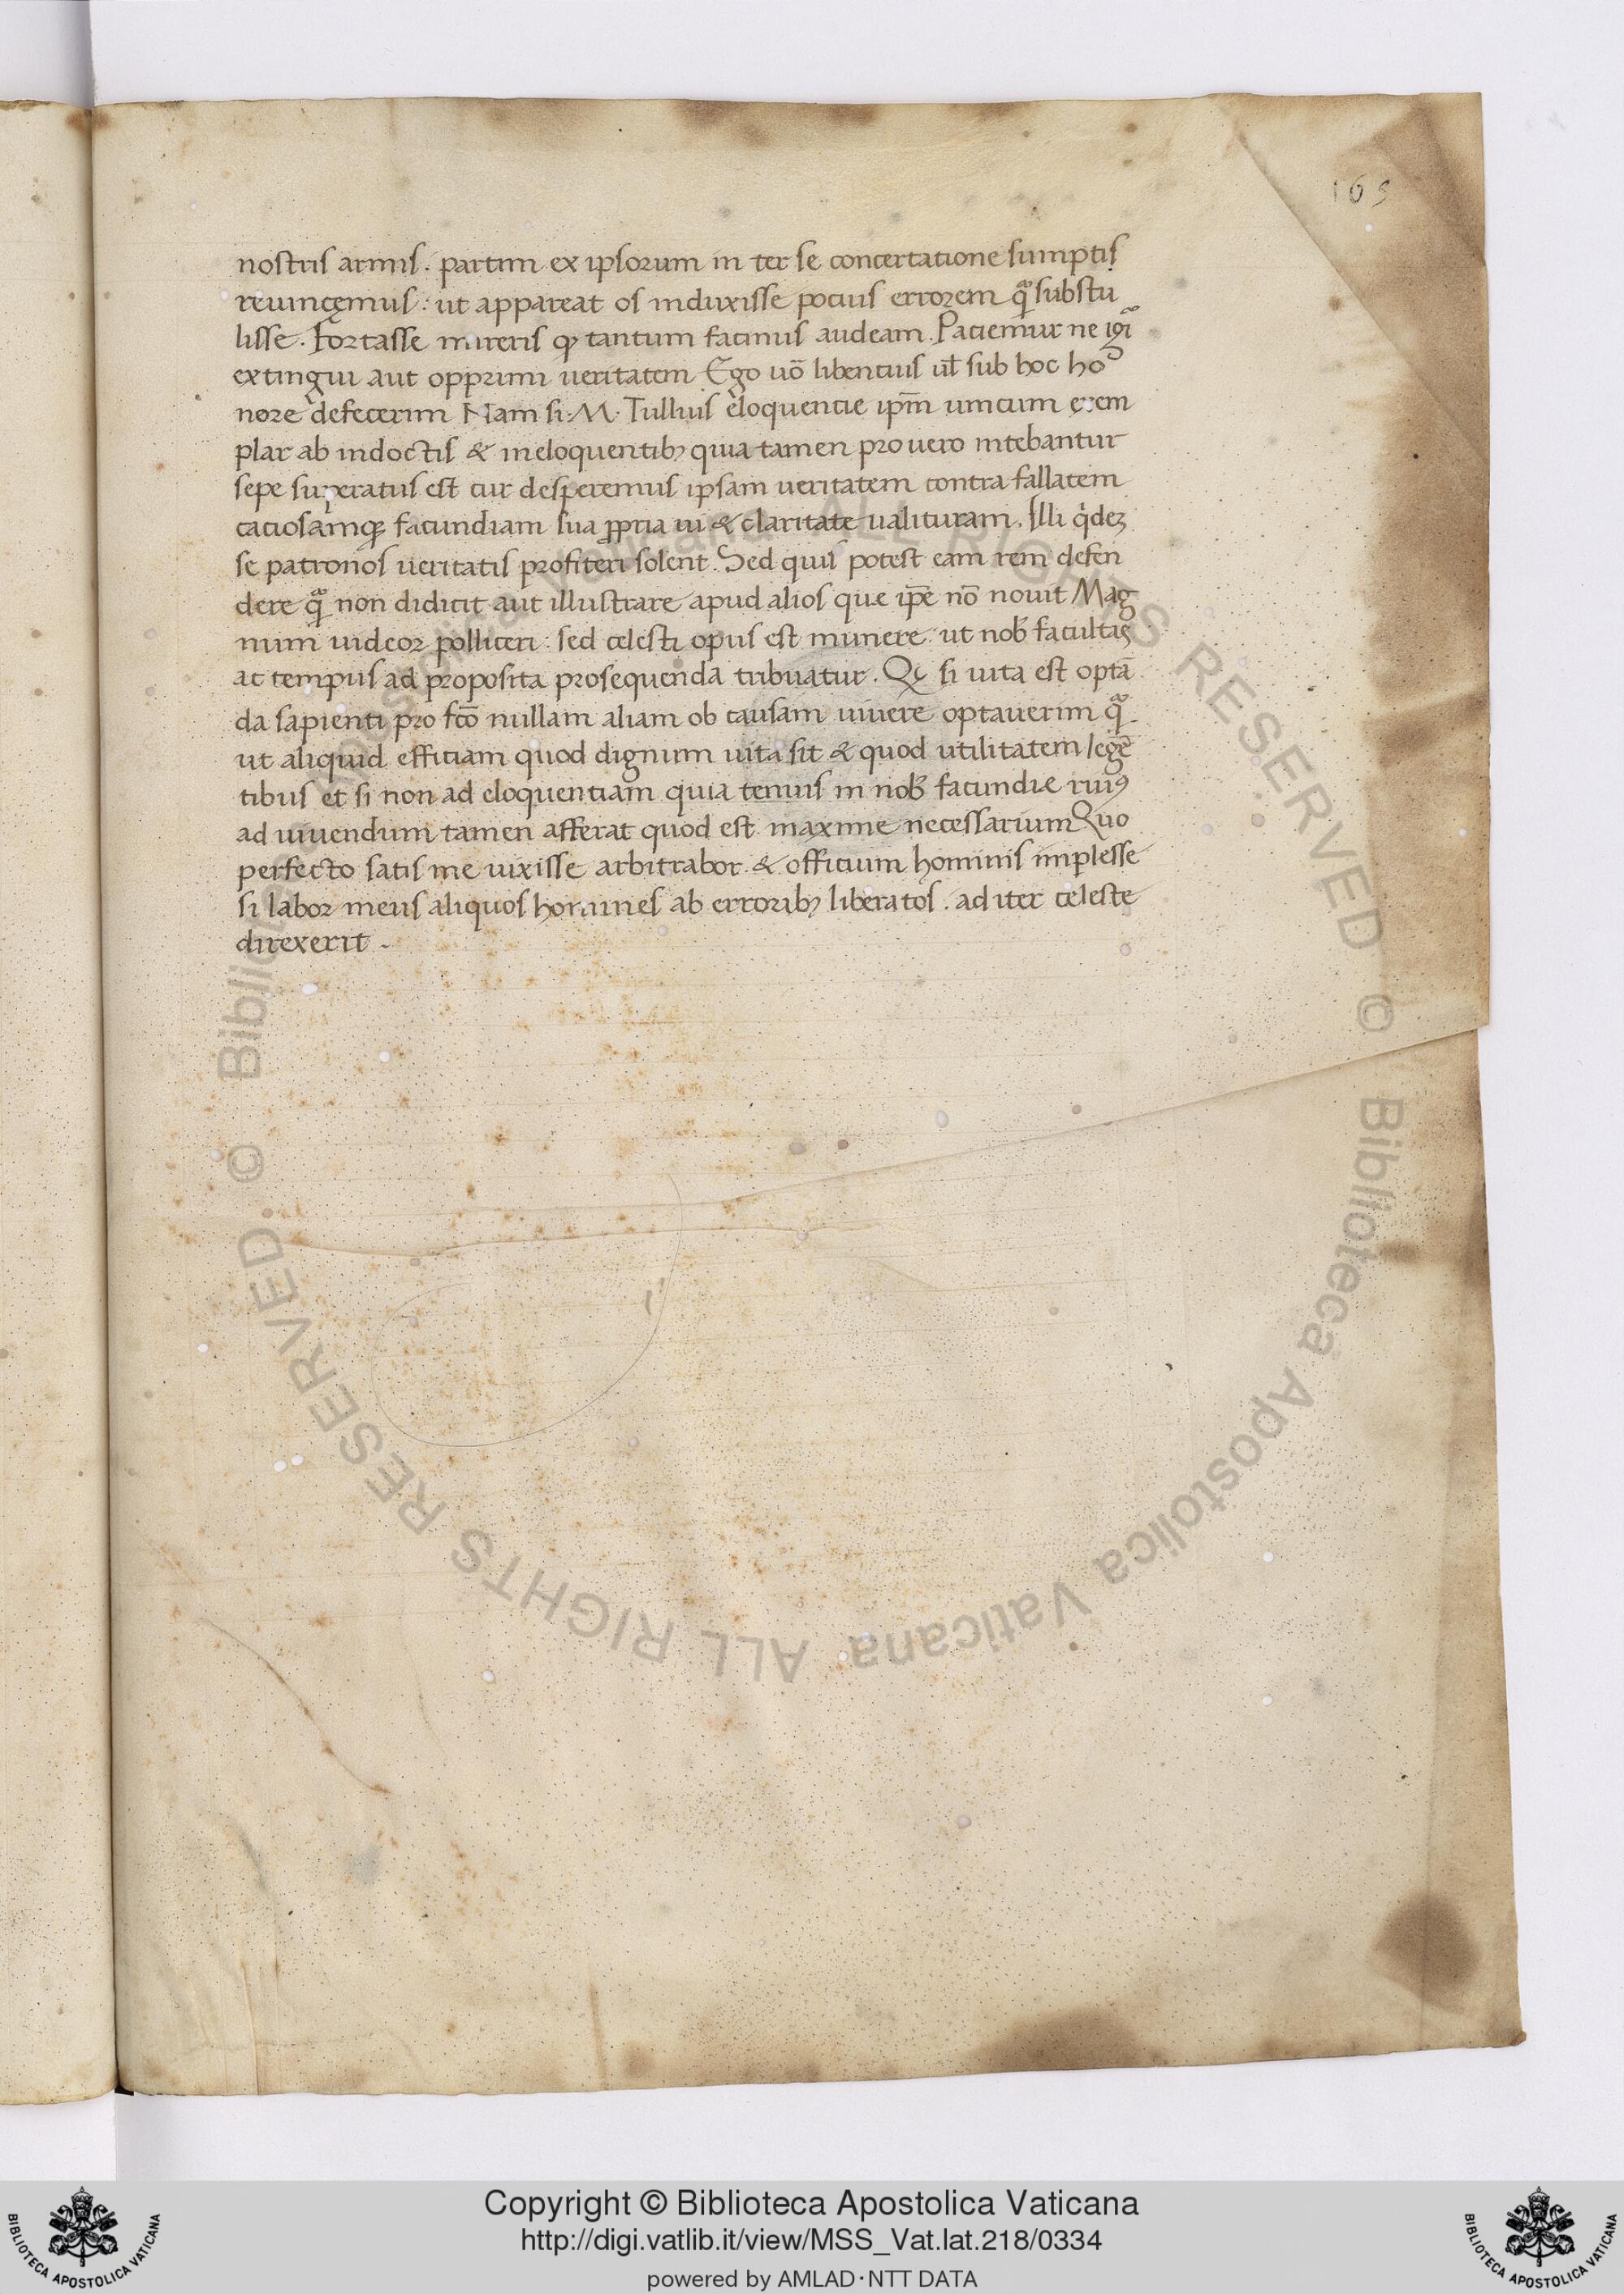 165
nostris armis. partim ex ipsorum in ter se concertatione sumptis
reuincęmus: ut appareat os induxisse pocius errorem qᷓ substu
lisse. Fortasse mireris ꝙ tantum facinus audeam. Paciemur ne igᷓ
extingui aut opprimi ueritatem Ego uo̅ libencius ul̅ sub hoc ho
nore defecerim Nam si. M. Tullius eloquencie ip̅m unicum exem
plar ab indoctis & ineloquentibꝫ quia tamen pro uero nitebantur
sepe superatus est cur desperemus ipsam ueritatem contra fallacem
caciosamqꝫ facundiam sua ꝓpria ui & claritate ualituram. Illi qͥdeꝫ
se patronos ueritatis profiteri solent. Sed quis potest eam rem defen
dere qᷓ non didicit aut illustrare apud alios que ip̅e no̅ nouit Mag
num uideor polliceri: sed celesti opus est munere. ut nob̅ facultas
ac tempus ad proposita prosequenda tribuatur. Qꝫ si uita est opta̅
da sapienti pro fc̅o nullam aliam ob causam uiuere optauerim qᷓ
ut aliquid efficiam quod dignum uita sit & quod utilitatem lege̅
tibus et si non ad eloquenciam quia tenuis in nob̅ facundie riuꝰ
ad uiuendum tamen afferat quod est maxime necessarium Quo
perfecto satis me uixisse arbitrabor. & officium hominis implesse
si labor meus aliquos homines ab erroribꝫ liberatos. ad iter celeste
direxerit.
© Biblioteca Apostolica Vaticana ALL RIGHTS RESERVED
© Biblioteca Apostolica Vaticana ALL RIGHTS RESERVED
BIBLIOTECA APOSTOLICA VATICANA
Copyright © Biblioteca Apostolica Vaticana
http://digi.vatlib.it/view/MSS_Vat.lat.218/0334
powered by AMLAD·NTT DATA
BIBLIOTECA APOSTOLICA VATICANA